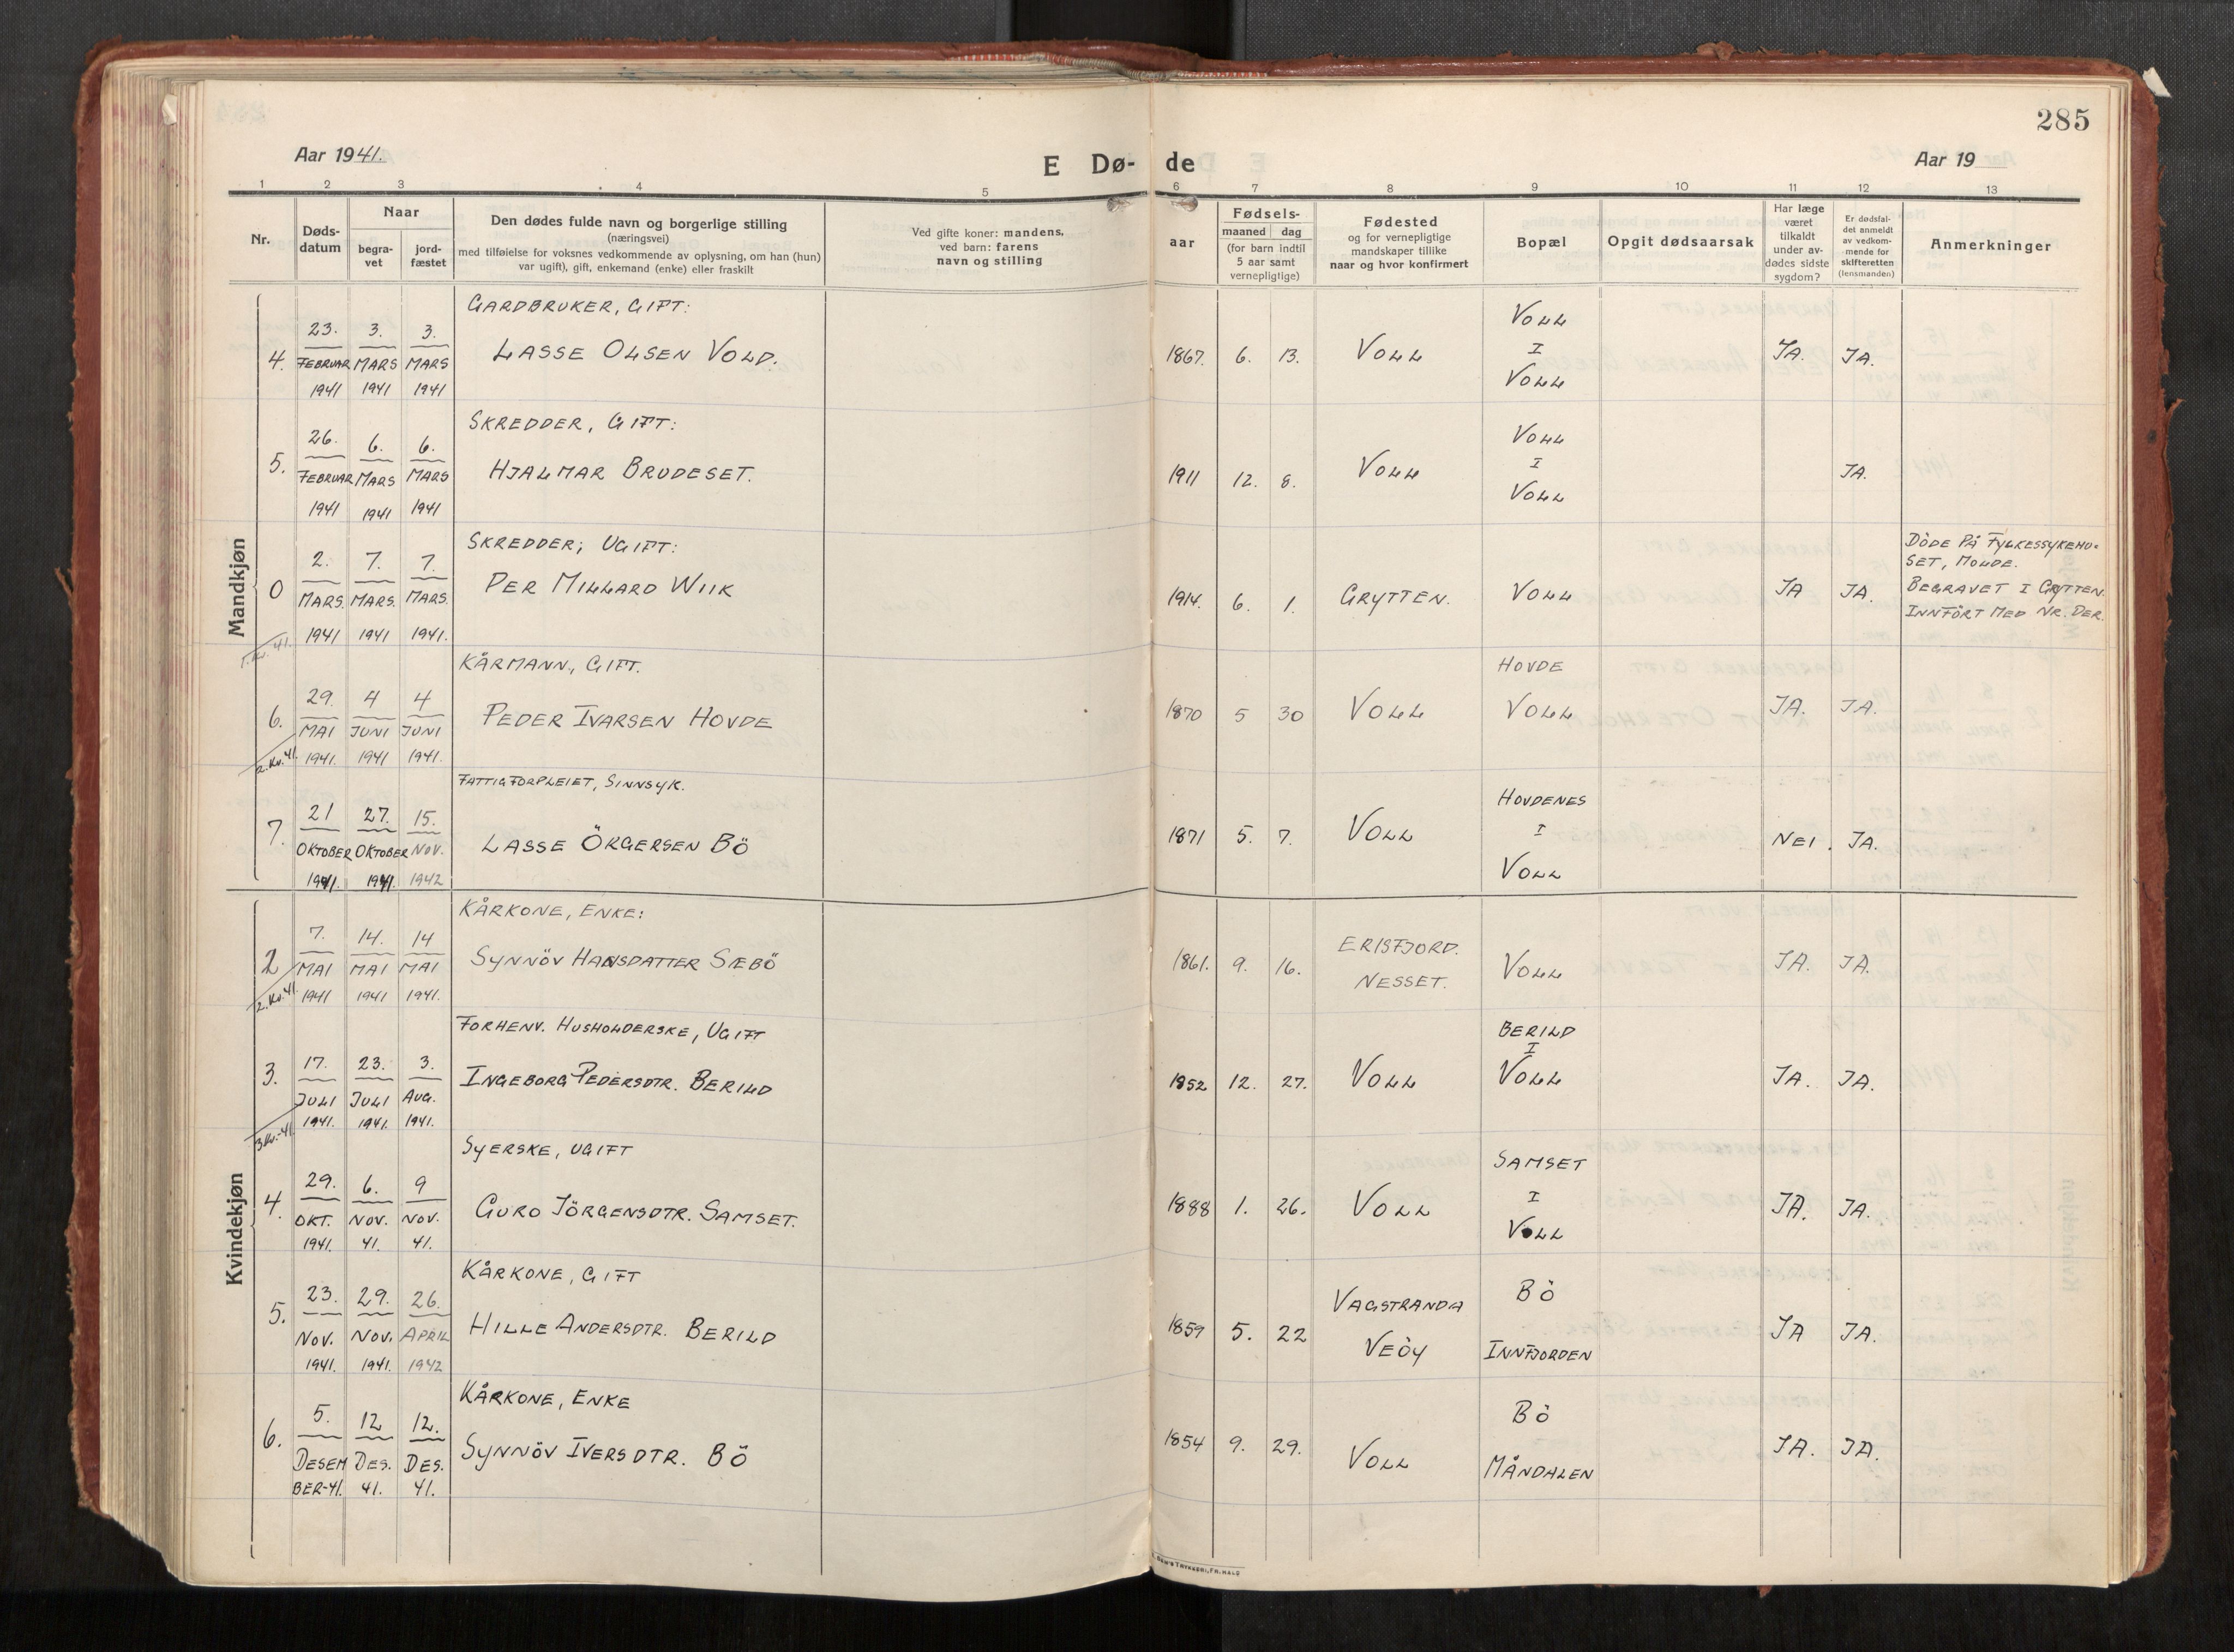 285
Aar 1941.
E Dø- de
Aar 19
1 2 3 4 5 6 7 8 9 10 11 12 13
Nr.
Døds-
datum
Naar
begra-
vet
jord-
fæstet
Den dødes fulde navn og borgerlige stilling
(næringsvei)
med tilføielse for voksnes vedkommende av oplysning, om han (hun)
var ugift), gift, enkemand (enke) eller fraskilt
Ved gifte koner: mandens,
ved barn: farens
navn og stilling
aar
Fødsels-
maaned dag
(for barn indtil
5 aar samt
vernepligtige)
Fødested
og for vernepligtige
mandskaper tillike
naar og hvor konfirmert
Bopæl
Opgit dødsaarsak
Har læge
været
tilkaldt
under av-
dødes sidste
sygdom?
Er dødsfal-
det anmeldt
av vedkom-
mende for
skifteretten
(lensmanden)
Anmerkninger
Mandkjøn
GARDBRUKER, GIFT:
4. 23. FEBRUAR 1941 3. MARS 1941 3. MARS 1941 LASSE OLSEN VOLD. 1867. 6. 13. VOLL VOLL I VOLL JA. JA.
SKREDDER, GIFT:
5. 26. FEBRUAR 1941 6. MARS 1941 6. MARS 1941 HJALMAR BRUDESET. 1911 12. 8. VOLL VOLL I VOLL JA.
SKREDDER, UGIFT:
0 2. MARS. 1941 7. MARS. 1941 7. MARS. 1941. PER MILLARD WIIK 1914. 6. 1. GRYTTEN. VOLL JA JA.
DÖDE PÅ FYLKESSYKEHU-
SET, MOLDE.
BEGRAVET I GRYTTEN.
INNFÖRT MED NR. DER.
1. Kv. 41.
KÅRMANN, GIFT.
6. 29. MAI 1941. 4 JUNI 1941 4 JUNI 1941. PEDER IVARSEN HOVDE 1870 5 30 VOLL HOVDE VOLL JA. JA.
2. Kv. 41.
FATTIGFORPLEIET, SINNSYK.
7. 21 OKTOBER 1941. 27. OKTOBER 1941. 15. NOV. 1942 LASSE ÖRGERSEN BÖ 1871 5. 7. VOLL HOVDENES I VOLL NEI. JA.
Kvindekjøn
KÅRKONE, ENKE:
2 7. MAI 1941 14. MAI 1941 14 MAI 1941. SYNNÖV HANSDATTER SÆBÖ 1861. 9. 16. ERISFJORD. NESSET. VOLL JA. JA.
2. Kv. 41.
FORHENV. HUSHOLDERSKE, UGIFT
3. 17. JULI 1941. 23. JULI 1941. 3. AUG. 1941. INGEBORG PEDERSDTR. BERILD 1852 12. 27. VOLL BERILD I VOLL JA. JA.
3. Kv.-41.
SYERSKE, UGIFT
4. 29. OKT. 1941. 6. NOV. 41. 9 NOV. 41. GURO JÖRGENSDTR. SAMSET. 1888 1. 26. VOLL SAMSET I VOLL JA. JA.
KÅRKONE, GIFT
5. 23. NOV. 1941. 29. NOV. 1941. 26. APRIL 1942 HILLE ANDERSDTR. BERILD 1859 5. 22 VAGSTRANDA VEÖY BÖ INNFJORDEN JA JA.
KÅRKONE, ENKE
6. 5. DESEMBER-41. 12 DES. 41. 12. DES. 41. SYNNÖV IVERSDTR. BÖ 1854 9. 29. VOLL BÖ MÅNDALEN JA. JA.